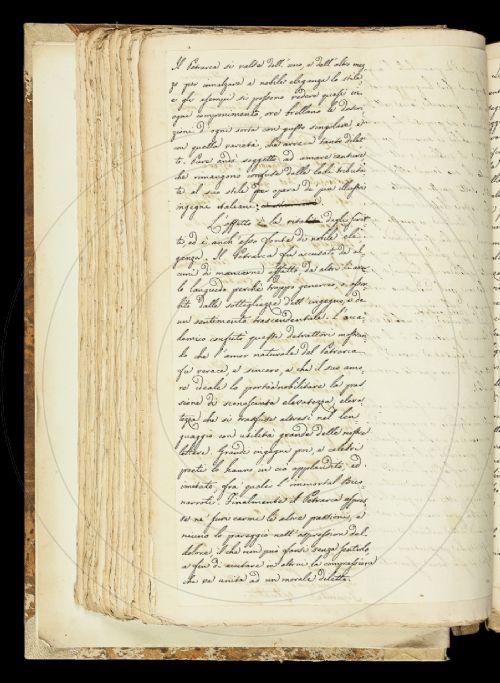 Il Petrarca si valse dell'uno, e dell'altro mez
zo per innalzare a nobile eleganza lo stile
e gli esempi si possono vedere quasi in
ogni componimento, ove brillano le descri
zioni d'ogni sorta con gusto singolare, e
con quella varietà, che arreca tanto dilet
to. Pure andò soggetto ad amare censure
che rimangono confuse dalla lode tributa
ta al suo stile per opera de' più illustri
ingegni italiani
L'affetto è la vita degli scrit
ti, ed è anch'esso fonte di nobile ele
ganza. Il Petrarca fu accusato da al
cuni di mancarne affatto, da altri
languido perchè troppo generoso, e
dalle sottigliezze dell'ingegno, e da
un sentimento trascendentale. L'acca
demico confutò questi detrattori mostran
do che l'amor naturale del Petrarca
fu verace, e sincero, e che il suo amo
re ideale lo portò a nobilitare la pas
sione di sconosciuta elevatezza, eleva
tezza che si trasfuse altresì nel lin
guaggio con utilità grande delle nostre
lettere. Grandi ingegni poi, e celebri
poeti lo hanno in ciò applaudito, ed
imitato, fra quali l'immortal Buo
narroti. Finalmente il Petrarca espres
se ne' suoi carmi le altre passioni, e
niuno lo pareggiò nell'espressione del
dolore, il che non può farsi senza
a fin di eccitare in altrui la compassione
che va unita ad un morale diletto.